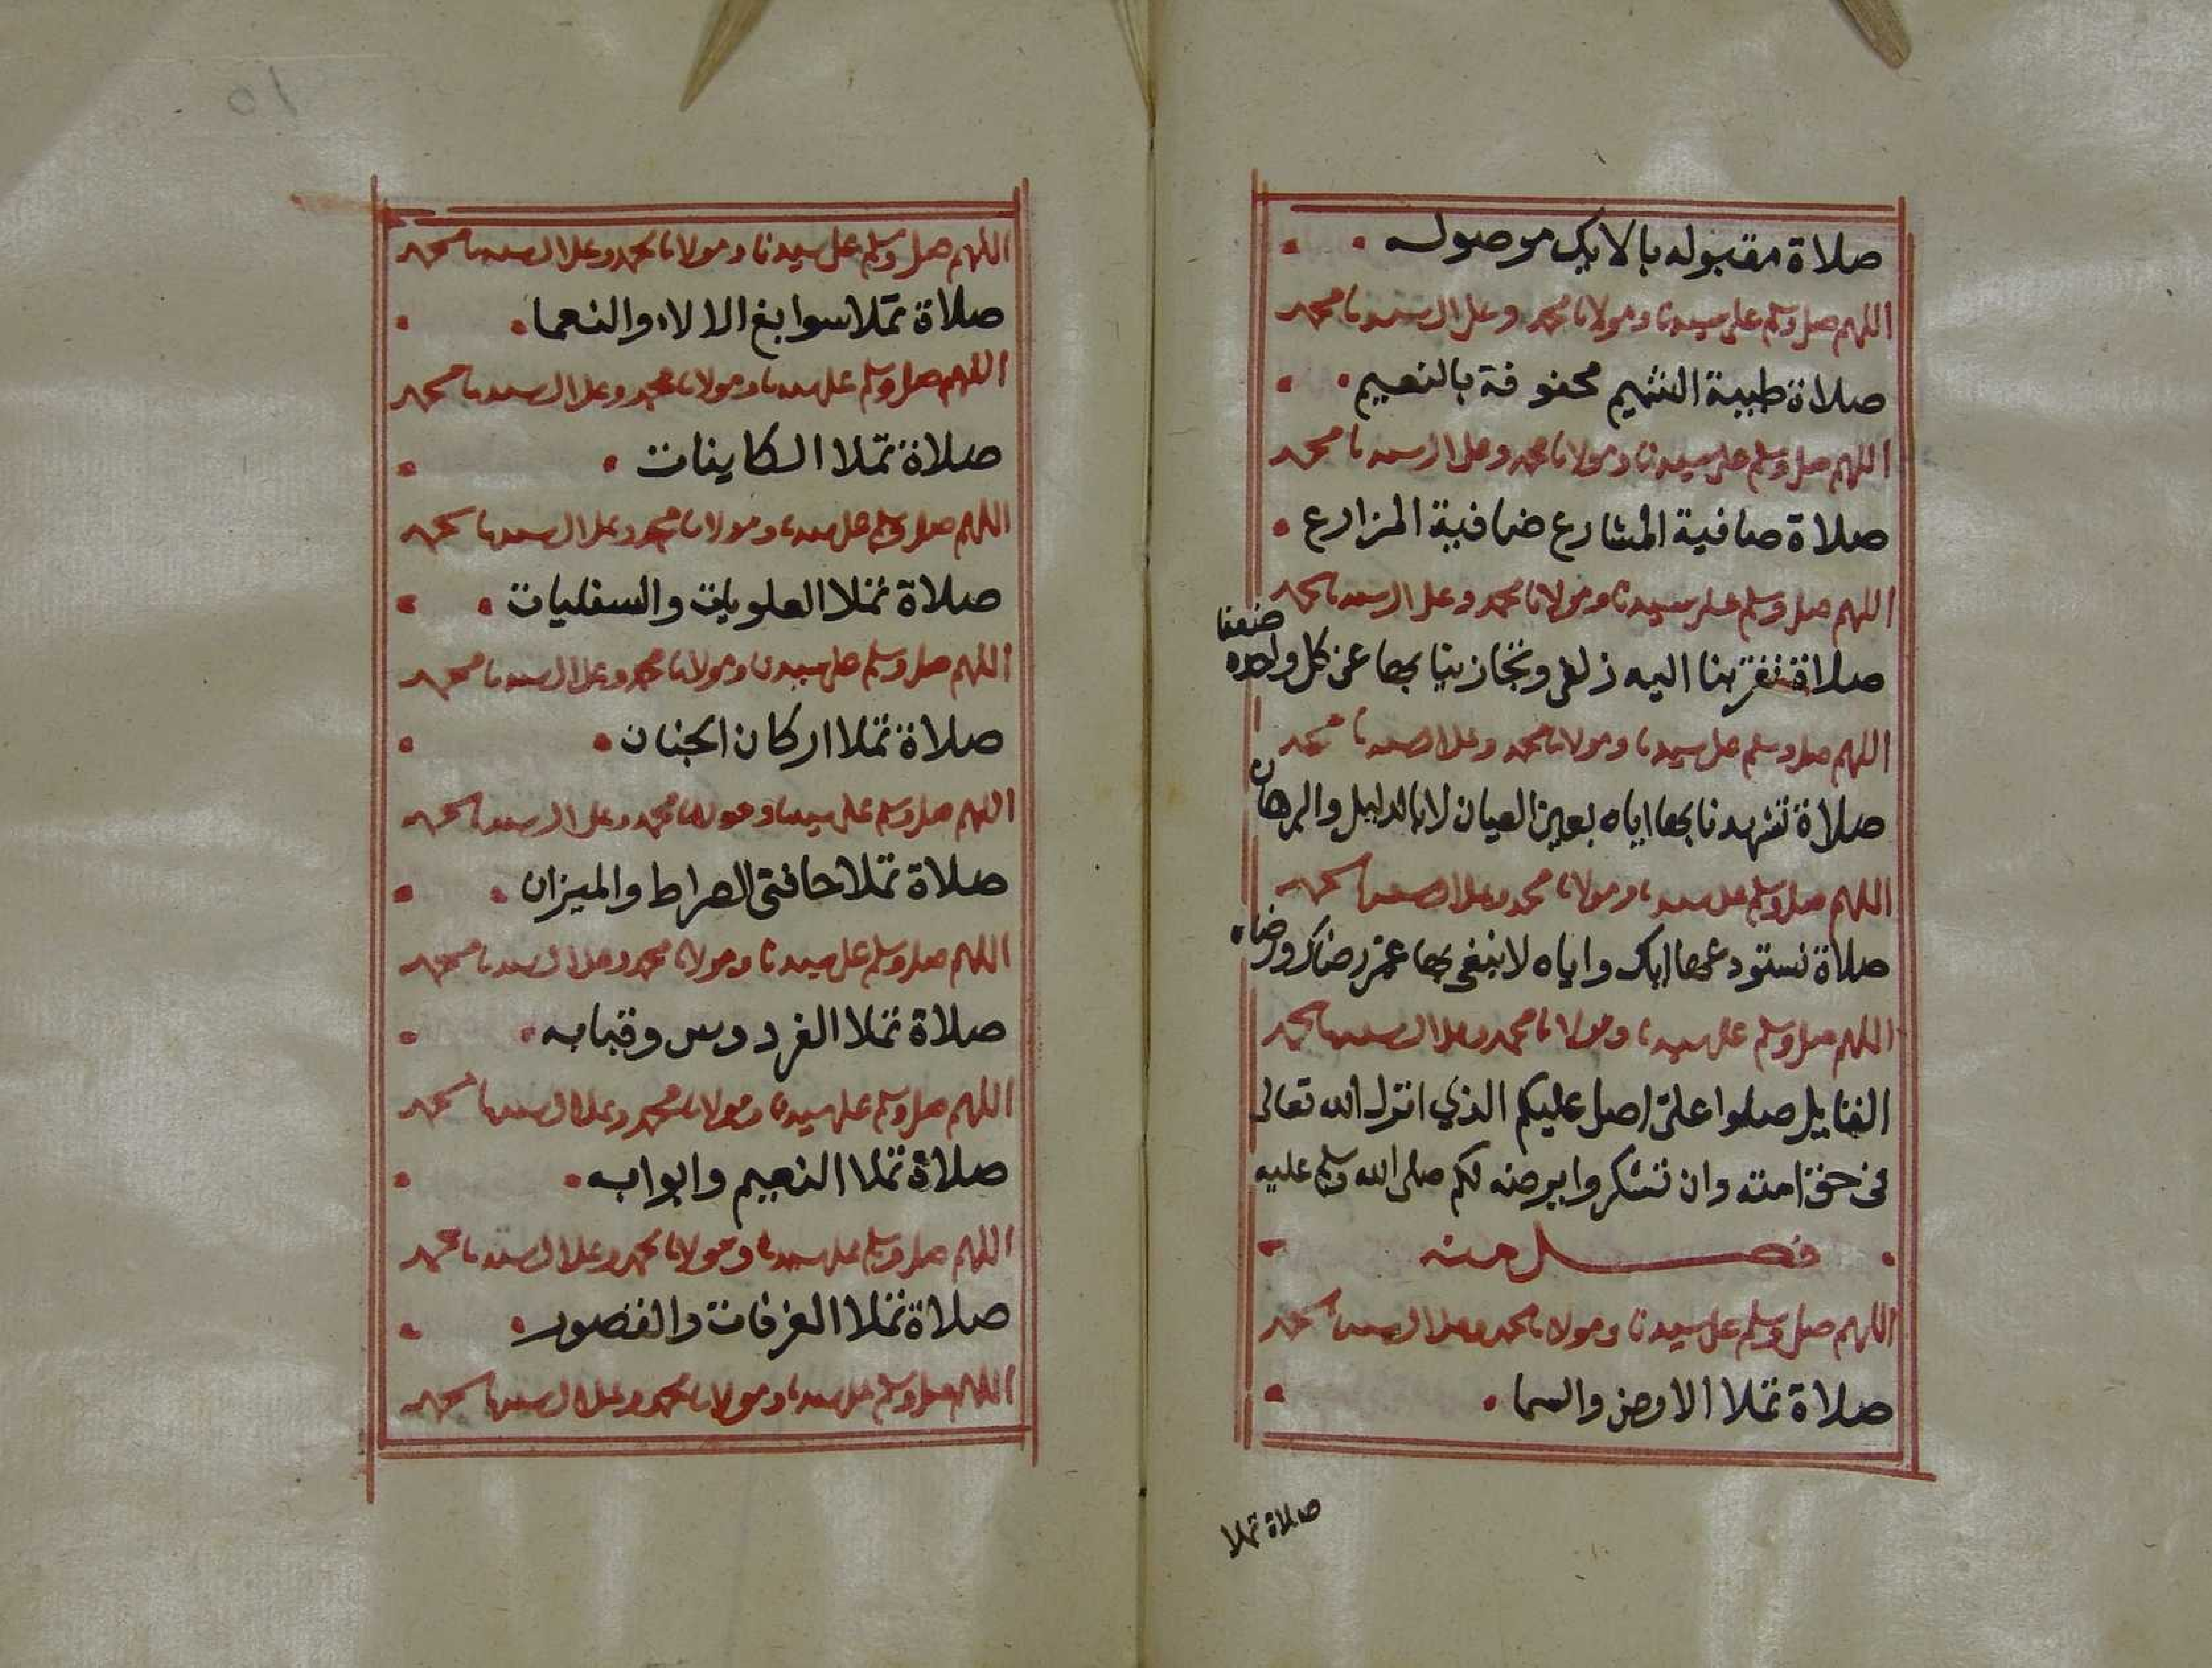 صلاة مقبوله بالايك موصوله
اللهم صل وسلم على سيدنا ومولانا محمد وعلى ال سيدنا محمد
صلاة طيبة الشميم محفوفة بالنعيم
اللهم صل وسلم على سيدنا ومولانا محمد وعلى ال سيدنا محمد
صلاة صافية المشارع ضافية المزارع
اللهم صل وسلم على سيدنا ومولانا محمد وعلى ال سيدنا محمد
صلاة تقربنا اليه زلفى وتجازينا بها عن كل واحده ضعفا
اللهم صل وسلم على سيدنا ومولانا محمد وعلى ال سيدنا محمد
صلاة تشهدنا بها اياه بعين العيان لا بالدليل والبرهان
اللهم صل وسلم على سيدنا ومولانا محمد وعلى ال سيدنا محمد
صلاة نستودعها اياك واياه لا نبغى بها غير رضاك ورضاه
اللهم صل وسلم على سيدنا ومولانا محمد وعلى ال سيدنا محمد
القايل صلوا علي اصل عليكم الذي انزل الله تعالى
فى حق امته وان تشكروا يرضه لكم صلى الله وسلم عليه
فصل منه
اللهم صل وسلم على سيدنا ومولانا محمد وعلى ال سيدنا محمد
صلاة تملا الارض والسما
صلاة تملا
١٥
اللهم صل وسلم على سيدنا ومولانا محمد وعلى ال سيدنا محمد
صلاة تملا سوابغ الالاء والنعما
اللهم صل وسلم على سيدنا ومولانا محمد وعلى ال سيدنا محمد
صلاة تملا الكاينات
اللهم صل وسلم على سيدنا ومولانا محمد وعلى ال سيدنا محمد
صلاة تملا العلويات والسفليات
اللهم صل وسلم على سيدنا ومولانا محمد وعلى ال سيدنا محمد
صلاة تملا اركان الجنان
اللهم صل وسلم على سيدنا ومولانا محمد وعلى ال سيدنا محمد
صلاة تملا حافتى الصراط والميزان
اللهم صل وسلم على سيدنا ومولانا محمد وعلى ال سيدنا محمد
صلاة تملا الفردوس وقبابه
اللهم صل وسلم على سيدنا ومولانا محمد وعلى ال سيدنا محمد
صلاة تملا النعيم وابوابه
اللهم صل وسلم على سيدنا ومولانا محمد وعلى ال سيدنا محمد
صلاة تملا الغرفات والقصور
اللهم صل وسلم على سيدنا ومولانا محمد وعلى ال سيدنا محمد